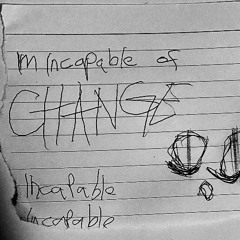 m incapable of
CHANGE
Incapable
incapable